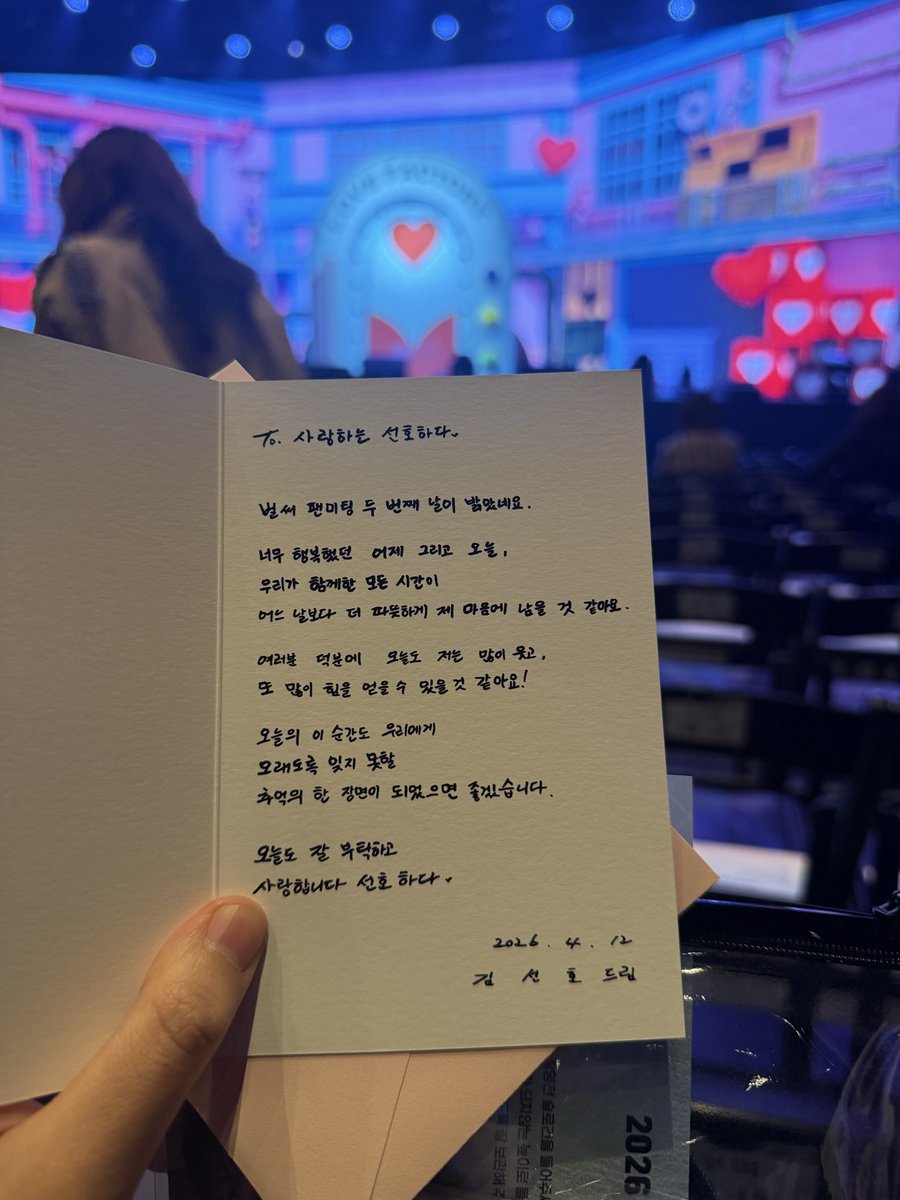 To. 사랑하는 선호하다
벌써 팬미팅 두 번째 날이 밝았네요.
너무 행복했던 어제 그리고 오늘,
우리가 함께한 모든 시간이
어느 날보다 더 따뜻하게 제 마음에 남을 것 같아요.
여러분 덕분에 오늘도 저는 많이 웃고,
또 많이 힘을 얻을 수 있을 것 같아요!
오늘의 이 순간도 우리에게
오래도록 잊지 못할
추억의 한 장면이 되었으면 좋겠습니다.
오늘도 잘 부탁하고
사랑합니다 선호하다
2026. 4. 12
김 선 호 드림
2026